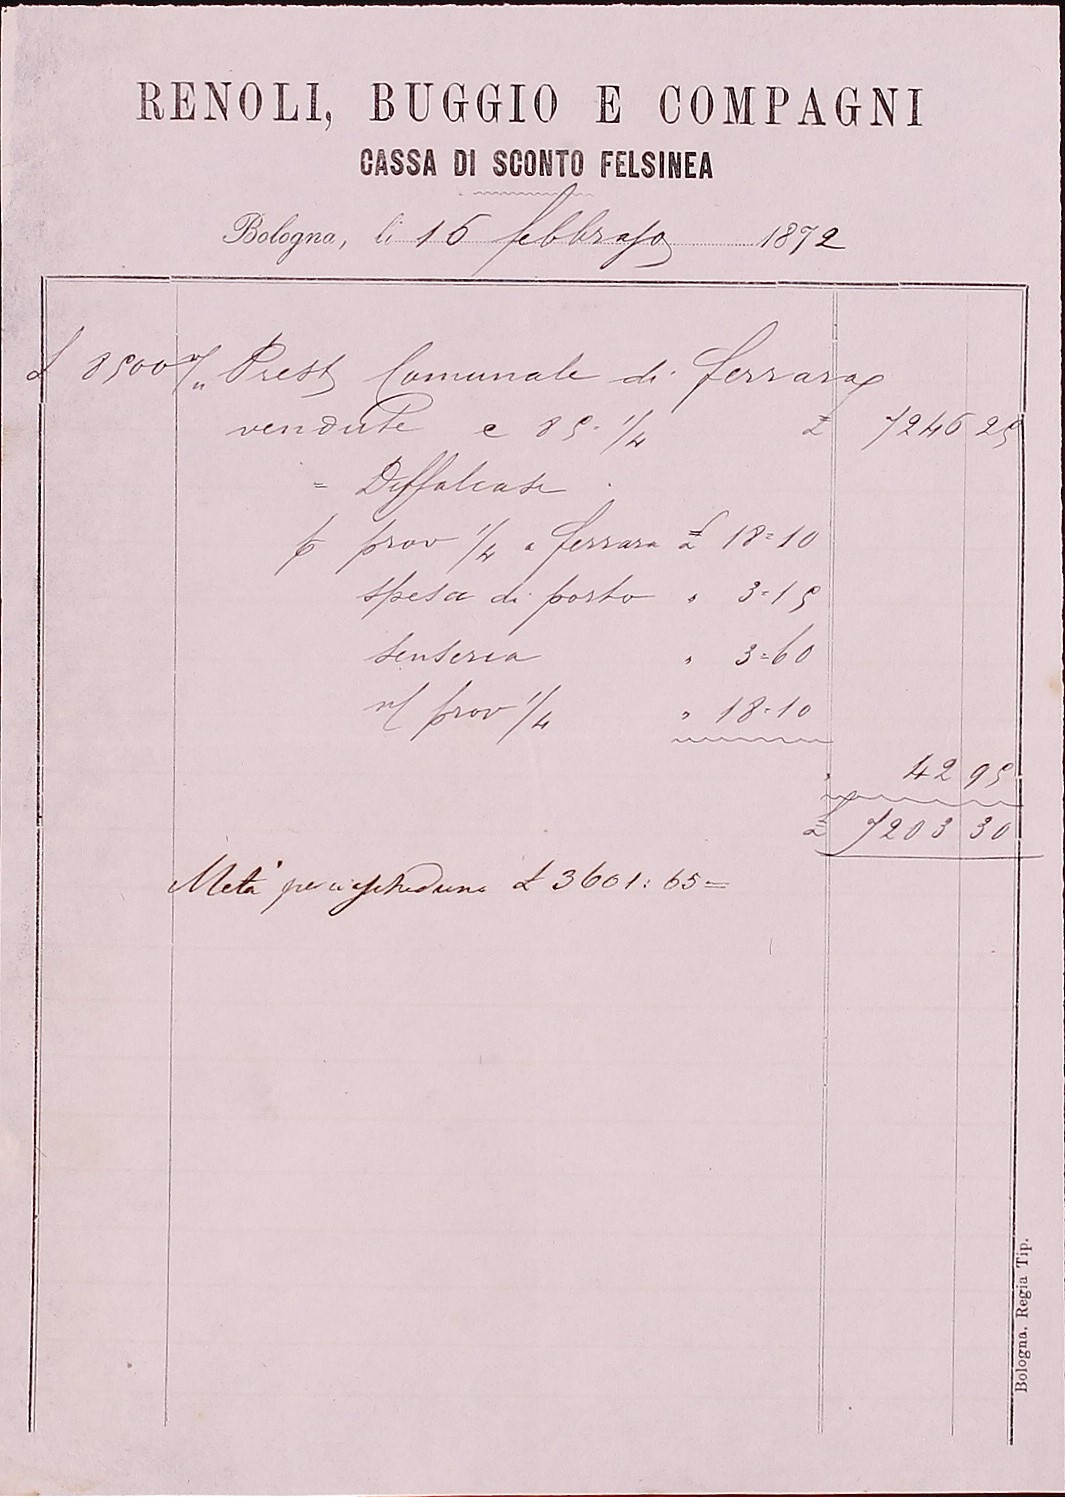 RENOLI, BUGGIO E COMPAGNI
CASSA DI SCONTO FELSINEA
Bologna, li 16 febbrajo 1872
£ 8500 Prest Comunale di Ferrara
vendute a 85 1/4 £ 7246 25
= Diffalcasi
p prov 1/4 a ferrara £ 18=10
spesa di porto " 3=15
senseria " 3=60
n/ prov 1/4 " 18=10
" 42 95
£ 7203 30
Metà per ciascheduno £ 3601:65=
Bologna, Regia Tip.